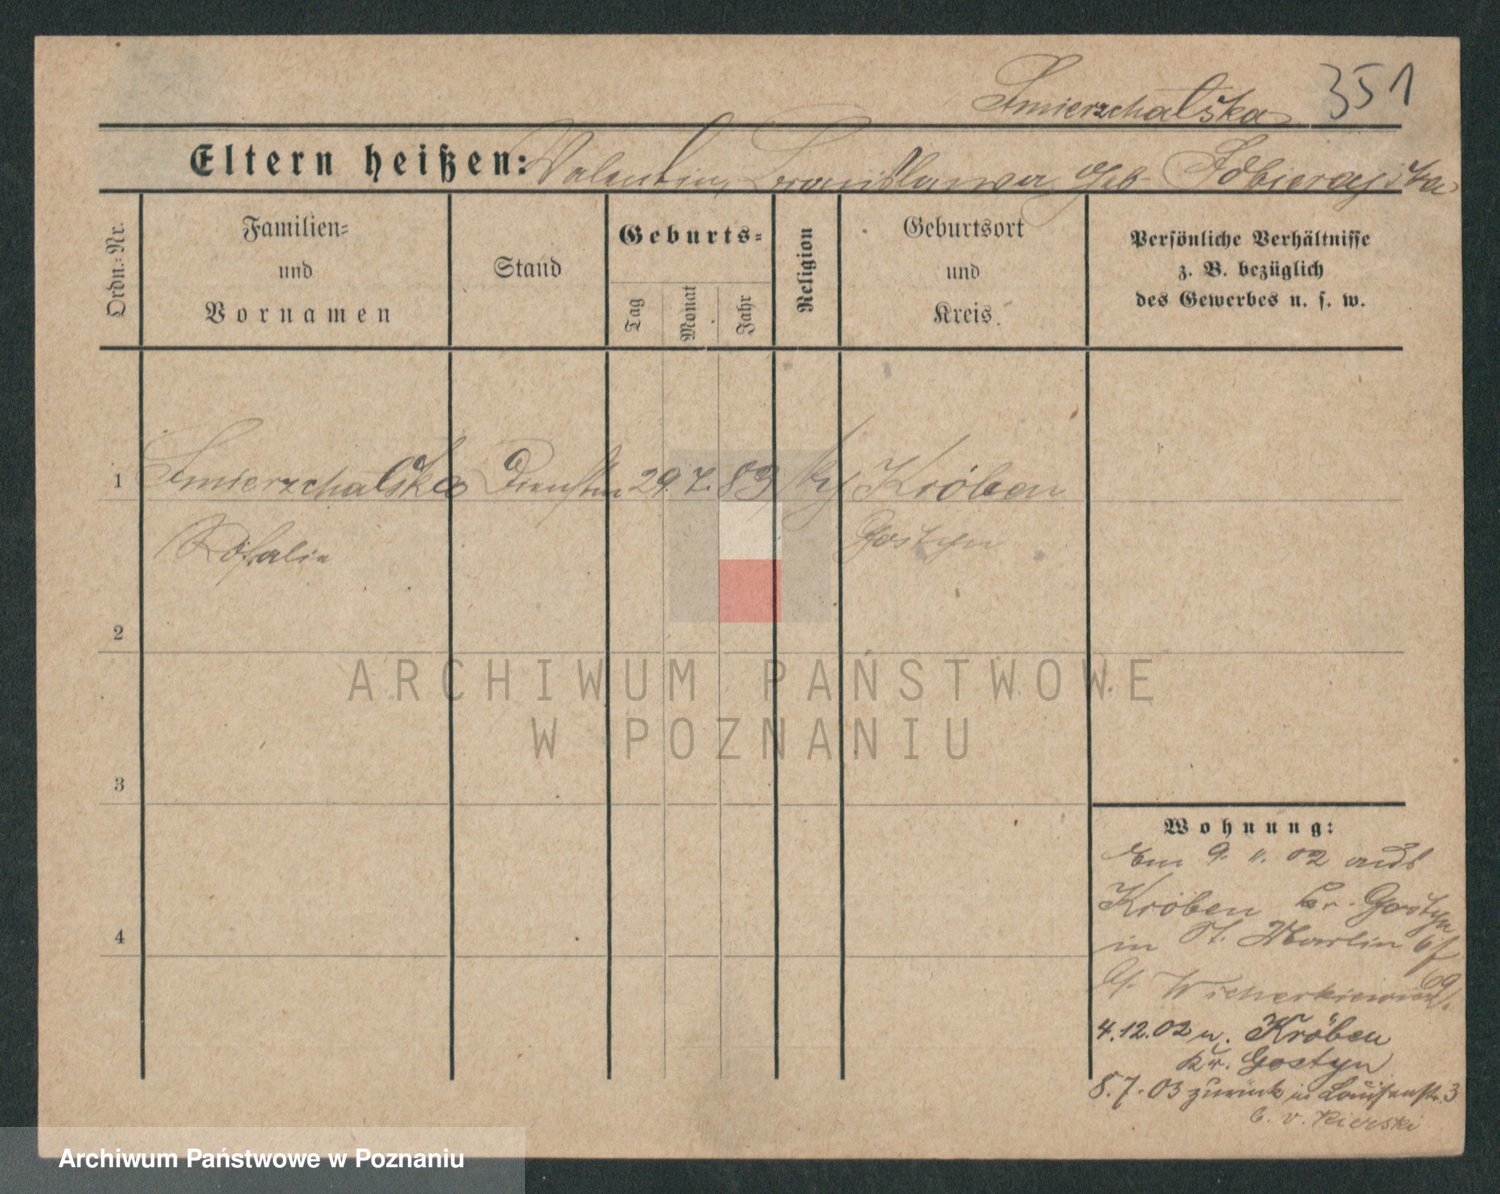 Smierzchalska 351
Eltern heißen: Valentin, Bronislawa geb.
Ordn.-Nr.
Familien-
und
Vornamen
Stand
Geburts-
Tag
Monat
Jahr
Religion
Geburtsort
und
Kreis.
Persönliche Verhältnisse
z. B. bezüglich
des Gewerbes u. s. w.
1 Smierzchalska 29. 7. 83 Kröben
Rosalie Gostyn
2
ARCHIWUM PAŃSTWOWE
W POZNANIU
3
Wohnung:
9. 11. 02 aus
Kröben Kr. Gostyn
4
in St. Martin
69
4.12.02 n. Kröben
Kr. Gostyn
8.7.03 zurück in Louisenstr. 3
b. v. Kierski
Archiwum Państwowe w Poznaniu